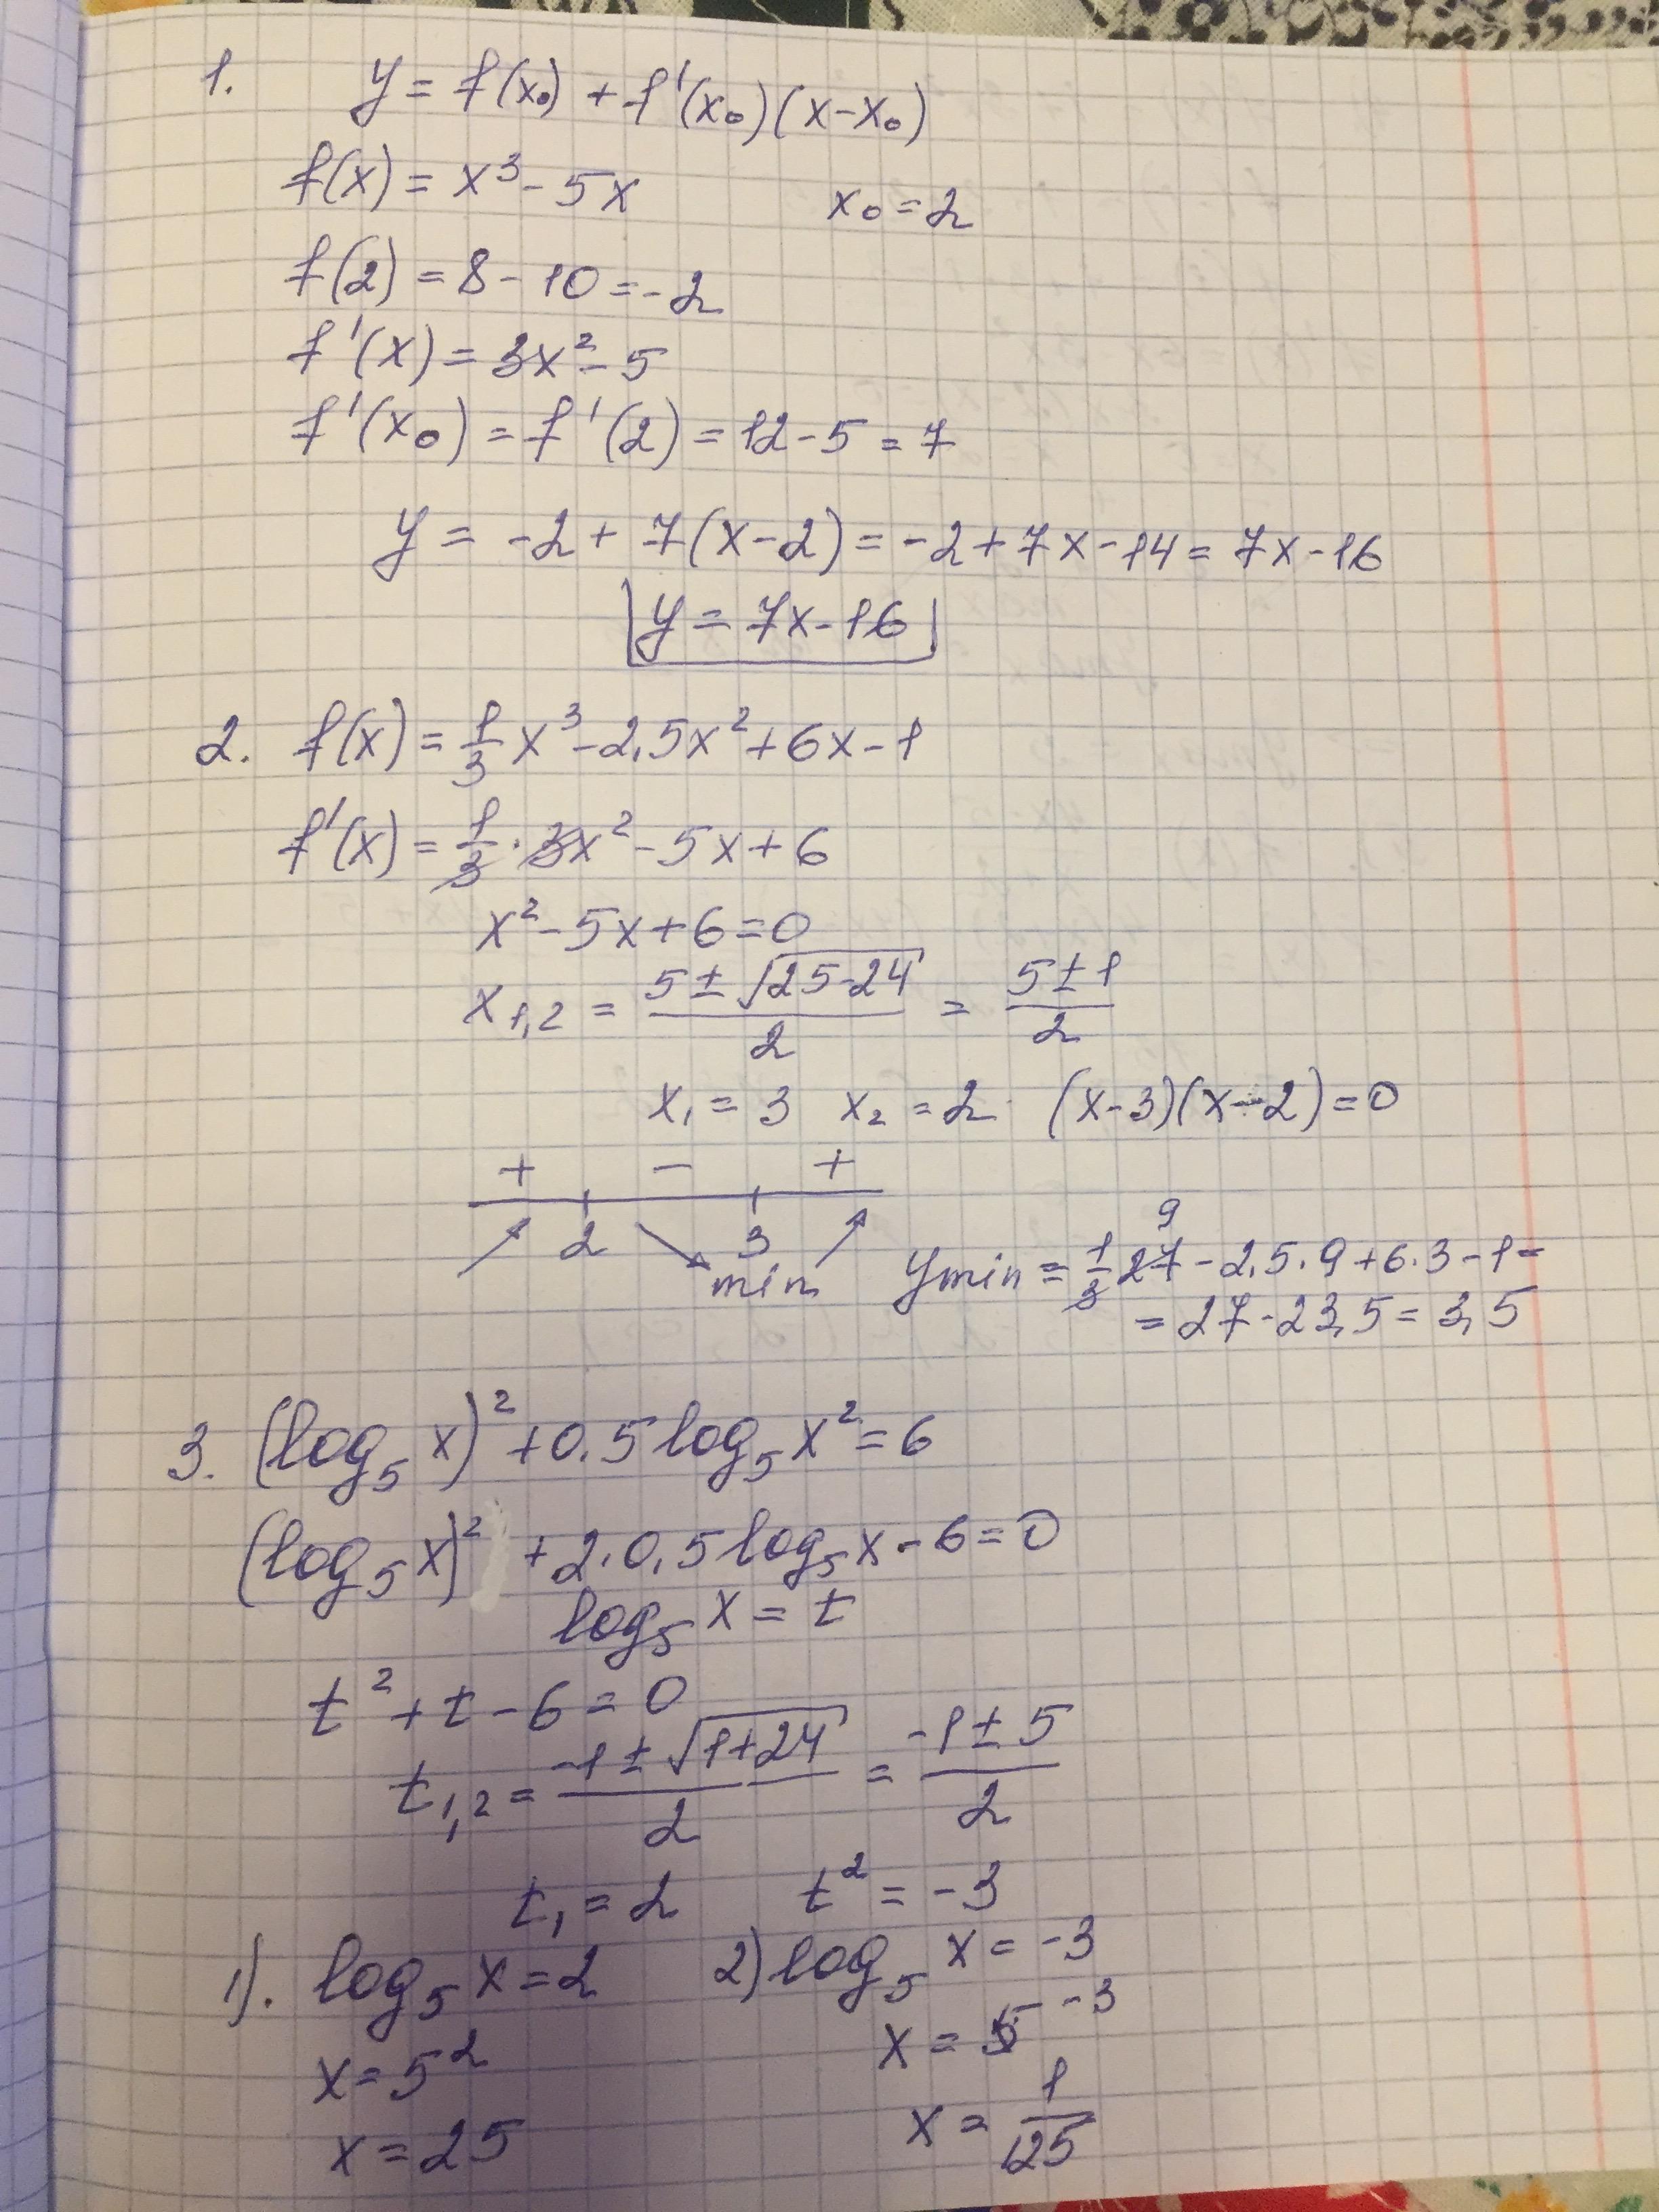 1. y = f(x₀) + f'(x₀)(x-x₀)
f(x) = x³ - 5x x₀ = 2
f(2) = 8 - 10 = -2
f'(x) = 3x² - 5
f'(x₀) = f'(2) = 12 - 5 = 7
y = -2 + 7(x-2) = -2 + 7x - 14 = 7x - 16
y = 7x - 16
2. f(x) = 1/3 x³ - 2.5x² + 6x - 1
f'(x) = 1/3 · 3x² - 5x + 6
x² - 5x + 6 = 0
x₁,₂ = (5 ± √(25-24))/2 = (5 ± 1)/2
x₁ = 3 x₂ = 2 (x-3)(x-2) = 0
+ - +
2 3
min
9
ymin = 1/3 27 - 2.5 · 9 + 6 · 3 - 1 =
= 27 - 23,5 = 3,5
3. (log₅ x)² + 0.5 log₅ x² = 6
(log₅ x)² + 2 · 0.5 log₅ x - 6 = 0
log₅ x = t
t² + t - 6 = 0
t₁,₂ = (-1 ± √(1+24))/2 = (-1 ± 5)/2
t₁ = 2 t² = -3
1). log₅ x = 2 2) log₅ x = -3
x = 5² x = 5⁻³
x = 25 x = 1/125